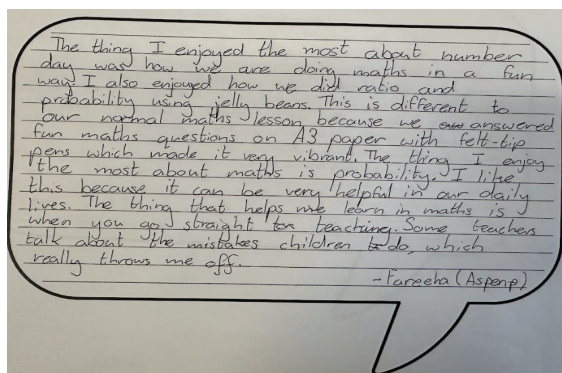 The thing I enjoyed the most about number
day was how we are doing maths in a fun
way. I also enjoyed how we did ratio and
probability using jelly beans. This is different to
our normal maths lesson because we answered
fun maths questions on A3 paper with felt-tip
pens which made it very vibrant. The thing I enjoy
the most about maths is probability. I like
this because it can be very helpful in our daily
lives. The thing that helps me learn in maths is
when you go straight to teaching. Some teachers
talk about the mistakes children do, which
really throws me off.
- Fareeha (Aspenp)